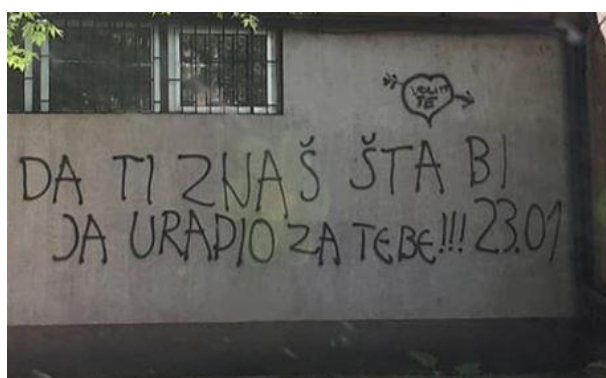 VOLIM
TE
DA TI ZNAŠ ŠTA BI
JA URADIO ZA TEBE!!! 23.01